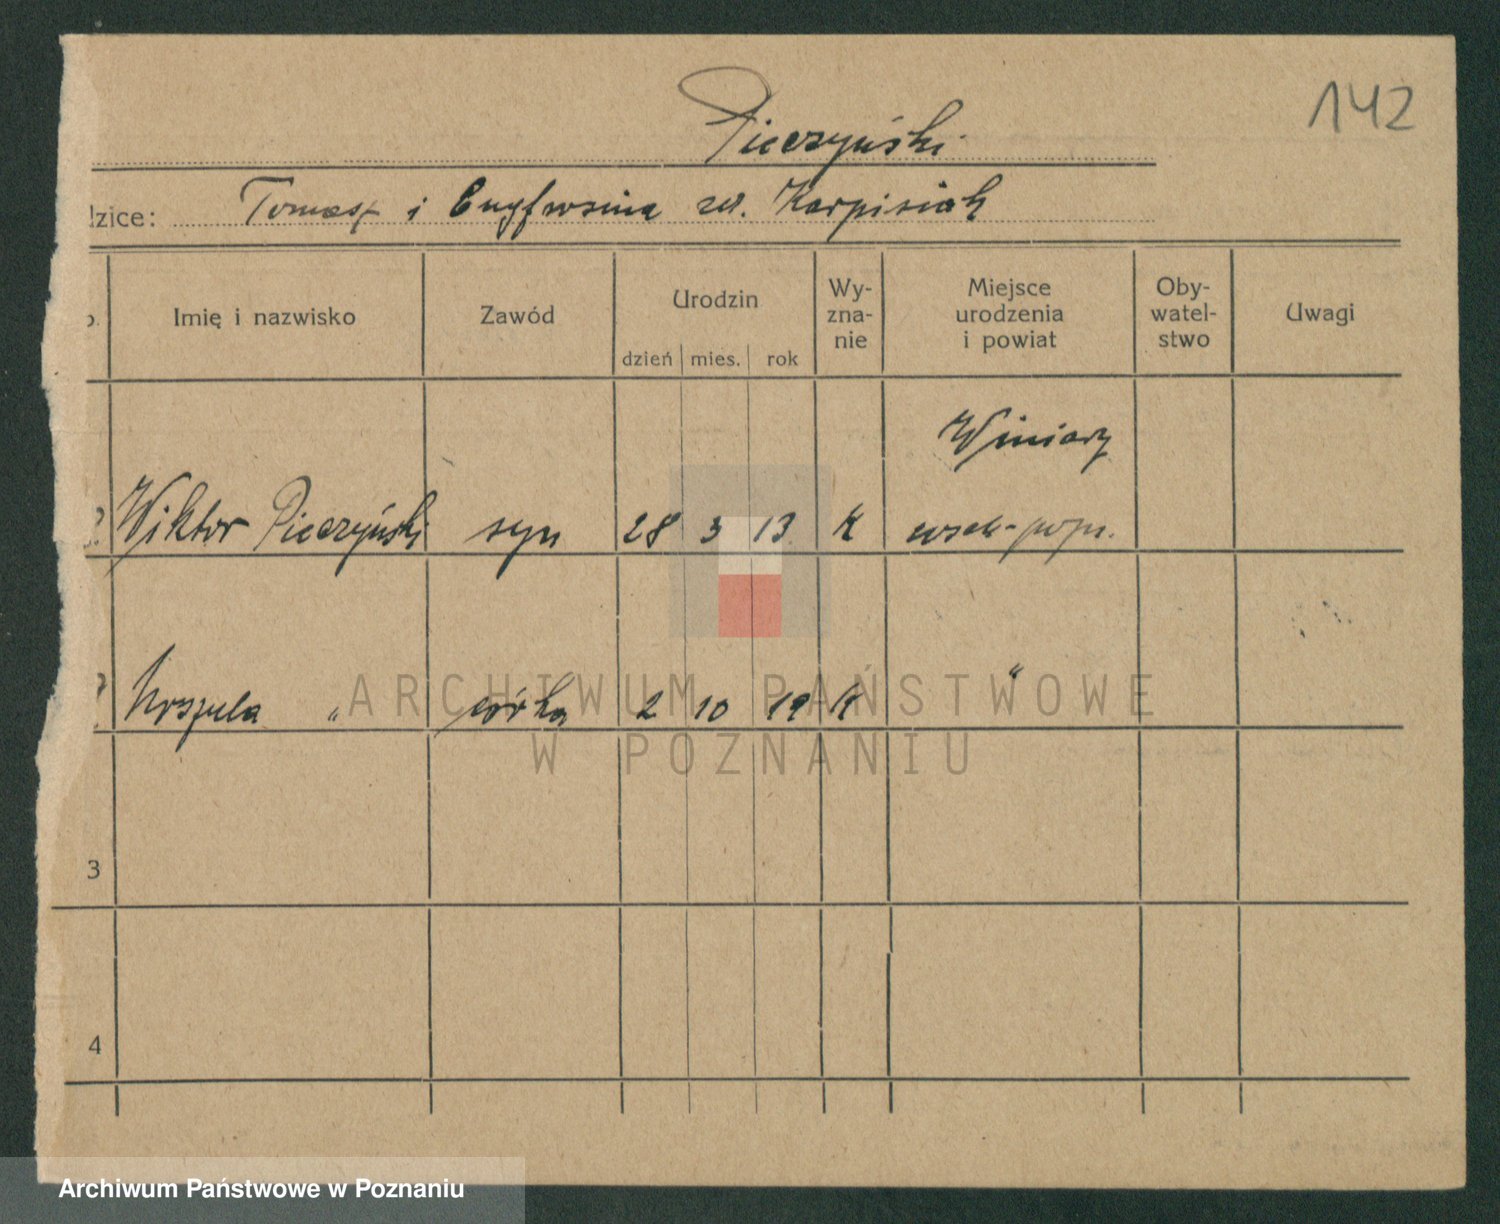 142
Pieczyński
dzice: Tomasz i Eufrozina zd. Karpisiak
Imię i nazwisko Zawód Urodzin Wy- Miejsce Oby- Uwagi
zna- urodzenia watel-
nie i powiat stwo
dzień mies. rok
Winiary
2. Wiktor Pieczyński syn 28 3 13 K
Urszula " córka 2 10 19 K "
3
4
ARCHIWUM PAŃSTWOWE
W POZNANIU
Archiwum Państwowe w Poznaniu